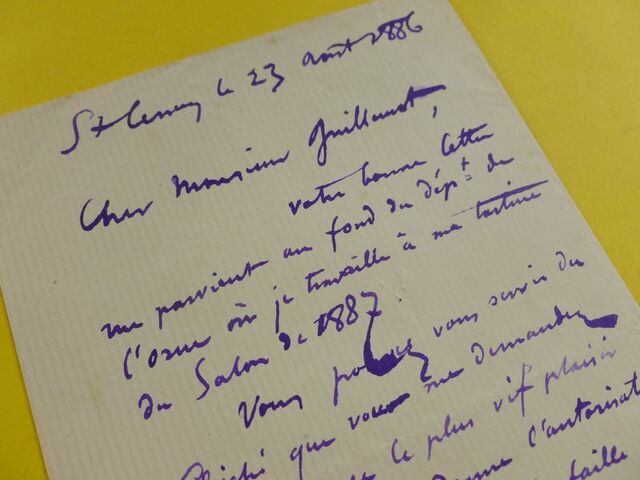 le 23 août 1886
Cher Monsieur Guillemot,
votre bonne lettre
me parvient au fond du dépt de
l'orne où je travaille à ma tartine
du Salon de 1887.
Vous pouvez vous servir du
Cliché que vous me demandez
le plus vif plaisir
l'autorisat